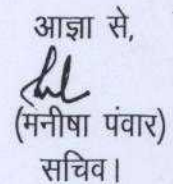 आज्ञा से,
(मनीषा पंवार)
सचिव।